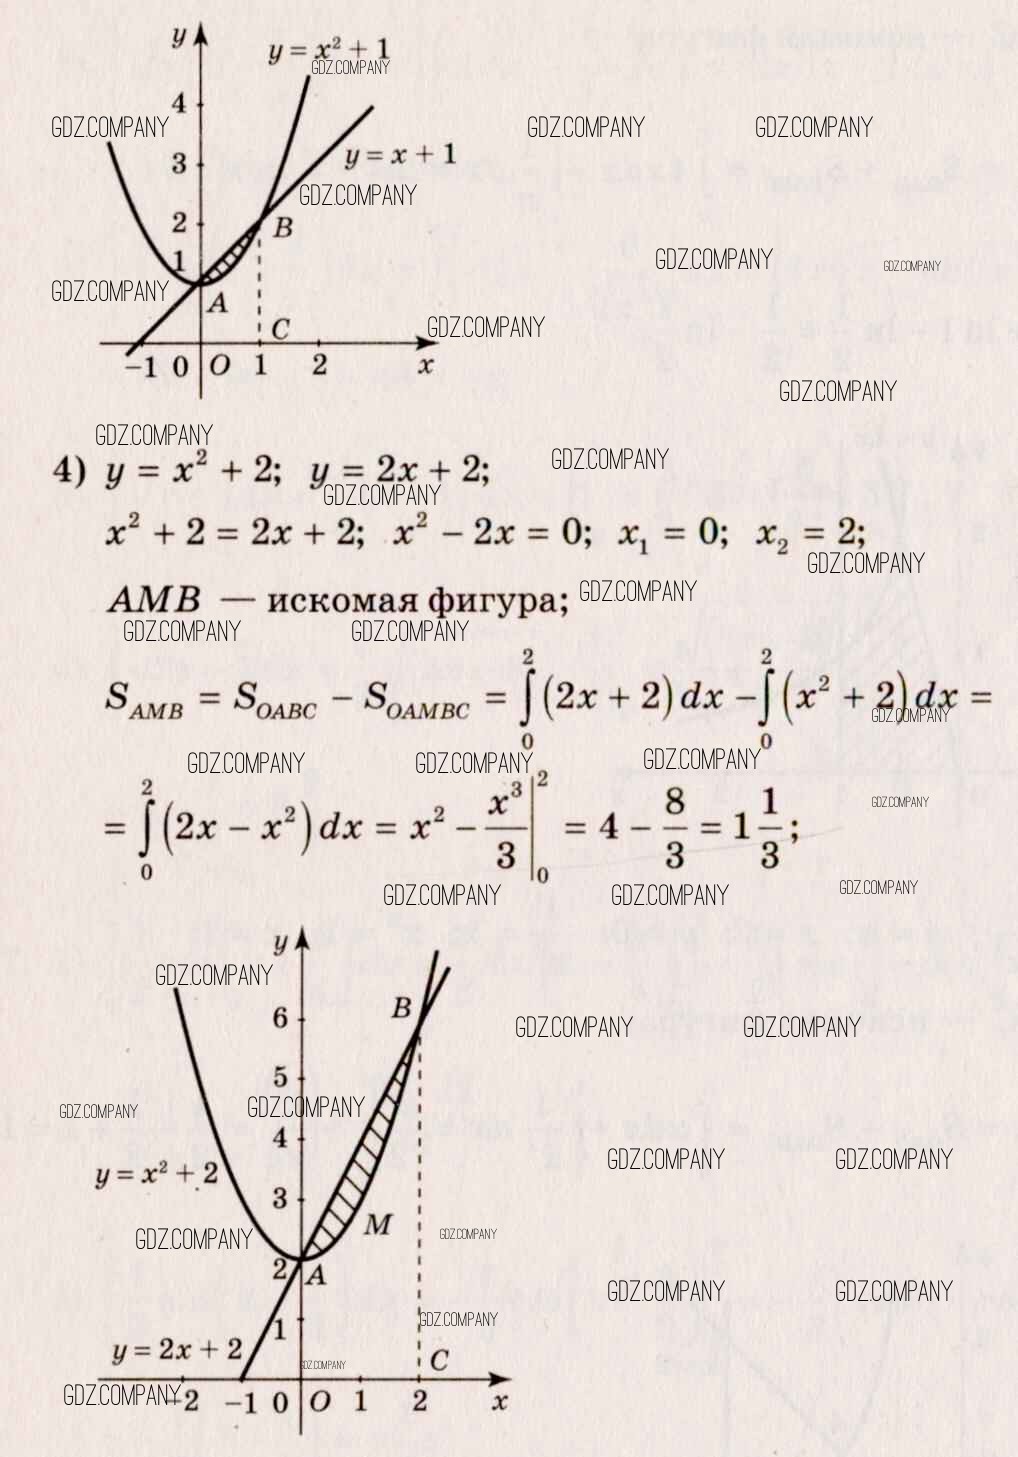 y
y = x² + 1
GDZ.COMPANY
4
GDZ.COMPANY GDZ.COMPANY GDZ.COMPANY
3
y = x + 1
GDZ.COMPANY
2
B
1
GDZ.COMPANY GDZ.COMPANY
GDZ.COMPANY
A
C
GDZ.COMPANY
−1 0 O 1 2 x
GDZ.COMPANY
GDZ.COMPANY
4) y = x² + 2; y = 2x + 2;
GDZ.COMPANY
GDZ.COMPANY
x² + 2 = 2x + 2; x² − 2x = 0; x₁ = 0; x₂ = 2;
GDZ.COMPANY
AMB — искомая фигура;
GDZ.COMPANY
GDZ.COMPANY GDZ.COMPANY
S_AMB = S_OABC − S_OAMBC = ∫₀² (2x + 2) dx − ∫₀² (x² + 2) dx =
GDZ.COMPANY
GDZ.COMPANY GDZ.COMPANY GDZ.COMPANY
GDZ.COMPANY
= ∫₀² (2x − x²) dx = x² − x³/3 |₀² = 4 − 8/3 = 1 1/3;
GDZ.COMPANY GDZ.COMPANY GDZ.COMPANY
y
GDZ.COMPANY
B
6
GDZ.COMPANY GDZ.COMPANY
5
GDZ.COMPANY GDZ.COMPANY
4
GDZ.COMPANY GDZ.COMPANY
y = x² + 2
3
M
GDZ.COMPANY GDZ.COMPANY
2
A
GDZ.COMPANY GDZ.COMPANY
1
GDZ.COMPANY
y = 2x + 2
C
GDZ.COMPANY
GDZ.COMPANY
−2 −1 0 O 1 2 x